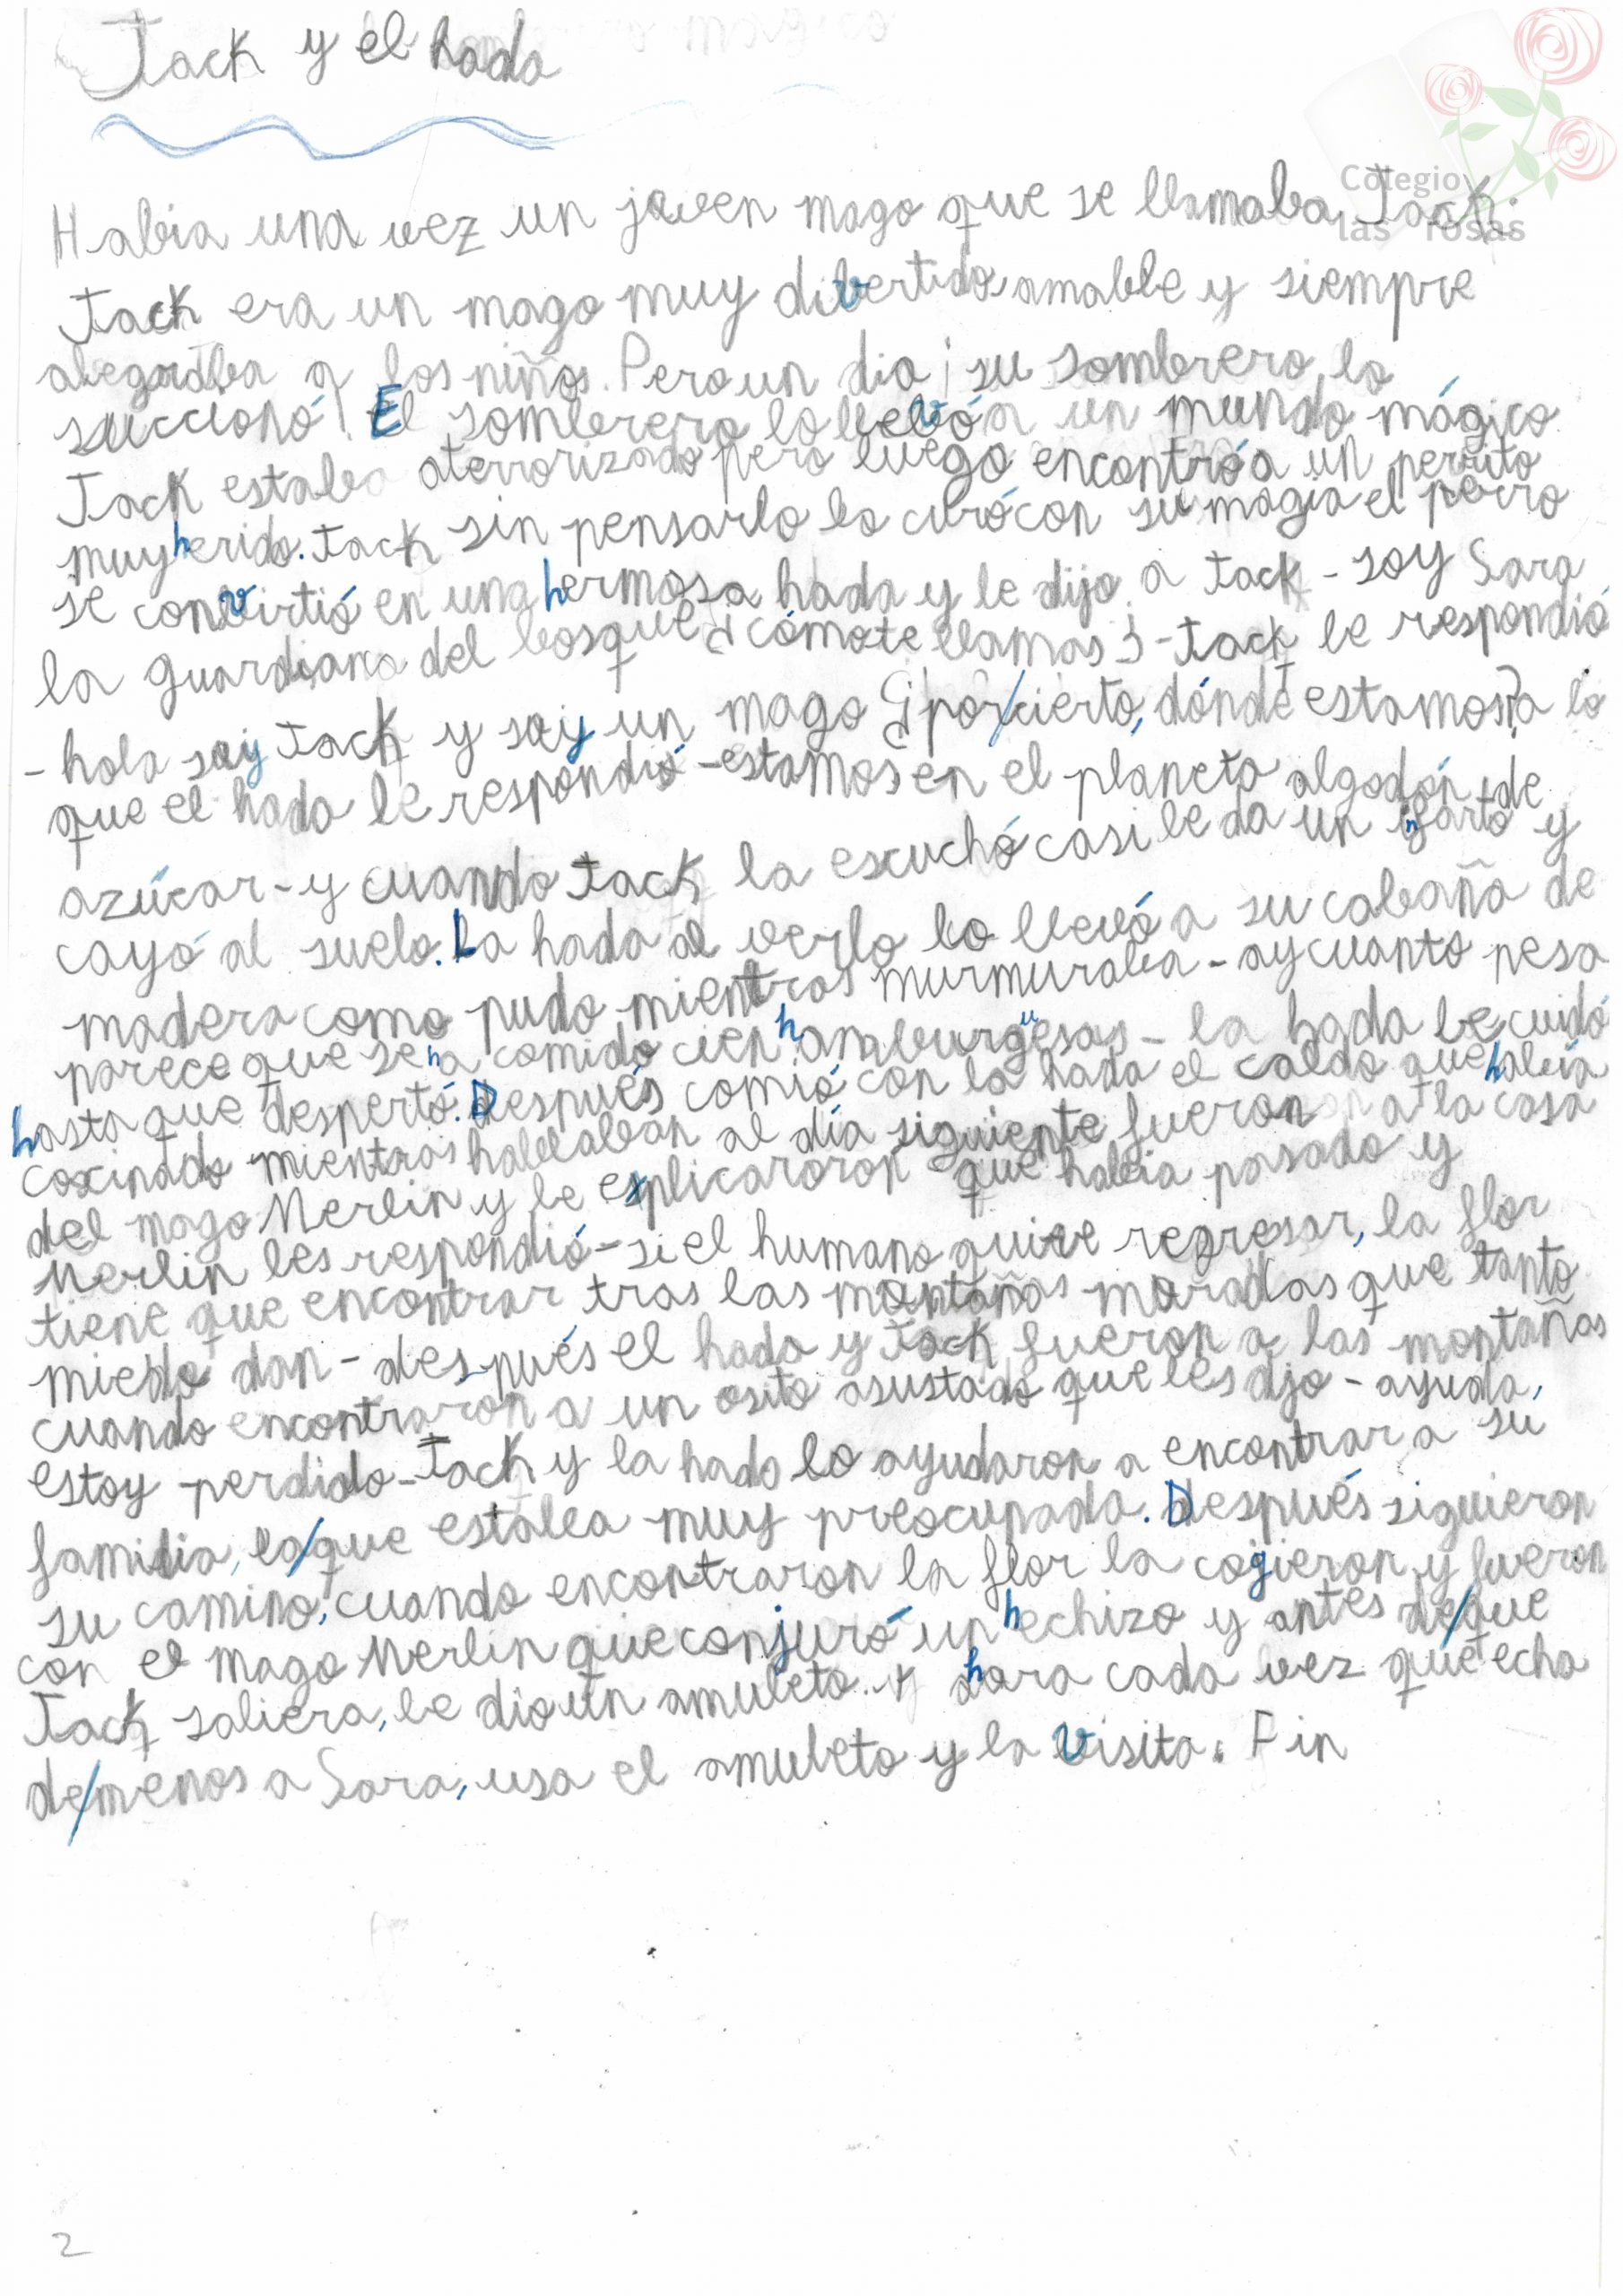 Jack y el hada
Colegio
las rosas
Habia una vez un joven mago que se llamaba Jack.
Jack era un mago muy divertido, amable y siempre
alegraba a los niños. Pero un dia ¡su sombrero lo
succionó! El sombrero lo llevó a un mundo mágico
Jack estaba aterrorizado pero luego encontró a un perrito
muy herido. Jack sin pensarlo lo curó con su magia el perro
se convirtió en una hermosa hada y le dijo a Jack - soy Sara
la guardiana del bosque ¿cómo te llamas? - Jack le respondió
- hola soy Jack y soy un mago ¿por cierto, dónde estamos? a lo
que el hada le respondió - estamos en el planeta algodón de
azúcar - y cuando Jack la escuchó casi le da un infarto y
cayó al suelo. La hada al verlo lo llevó a su cabaña de
madera como pudo mientras murmuraba - ay cuanto pesa
parece que se ha comido cien hamburguesas - la hada le cuidó
hasta que despertó. Después comió con la hada el caldo que había
cocinado mientras hablaban al día siguiente fueron a la casa
del mago Merlin y le explicaroron que habia pasado y
Merlin les respondió - si el humano quire regresar, la flor
tiene que encontrar tras las montañas moradas que tanto
miedo dan - después el hada y Jack fueron a las montañas
cuando encontraron a un osito asustado que les djo - ayuda,
estoy perdido - Jack y la hada lo ayudaron a encontrar a su
familia, la que estaba muy preocupada. Después siguieron
su camino, cuando encontraron la flor la cogieron y fueron
con el mago Merlin que conjuró un hechizo y antes de que
Jack saliera, le dio un amuleto. y ahora cada vez que echa
de menos a Sara, usa el amuleto y la visita. Fin
2